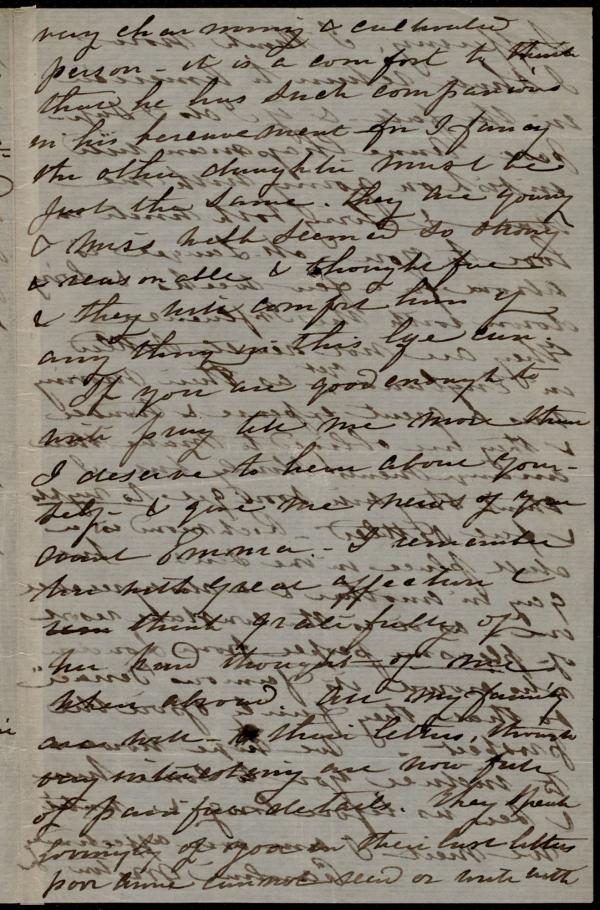 very charming & cultivated
person - it is a comfort to think
that he has such companions
in his bereavement for I fancy
the other daughter must be
just the same. They are young
& Miss seemed so strong
& reasonable & thoughtful
& they will comfort him if
any thing in this life can.
If you are good enough to
write pray tell me more than
I deserve to hear about your-
self - & give me news of your
aunt Emma. - I remember
her with great affection &
think gratefully of
her kind thought of me
when abroad. All my family
are well - their letters, though
very interesting are now full
of painful details. They speak
lovingly of you in their last letters
poor Anne cannot read or write with